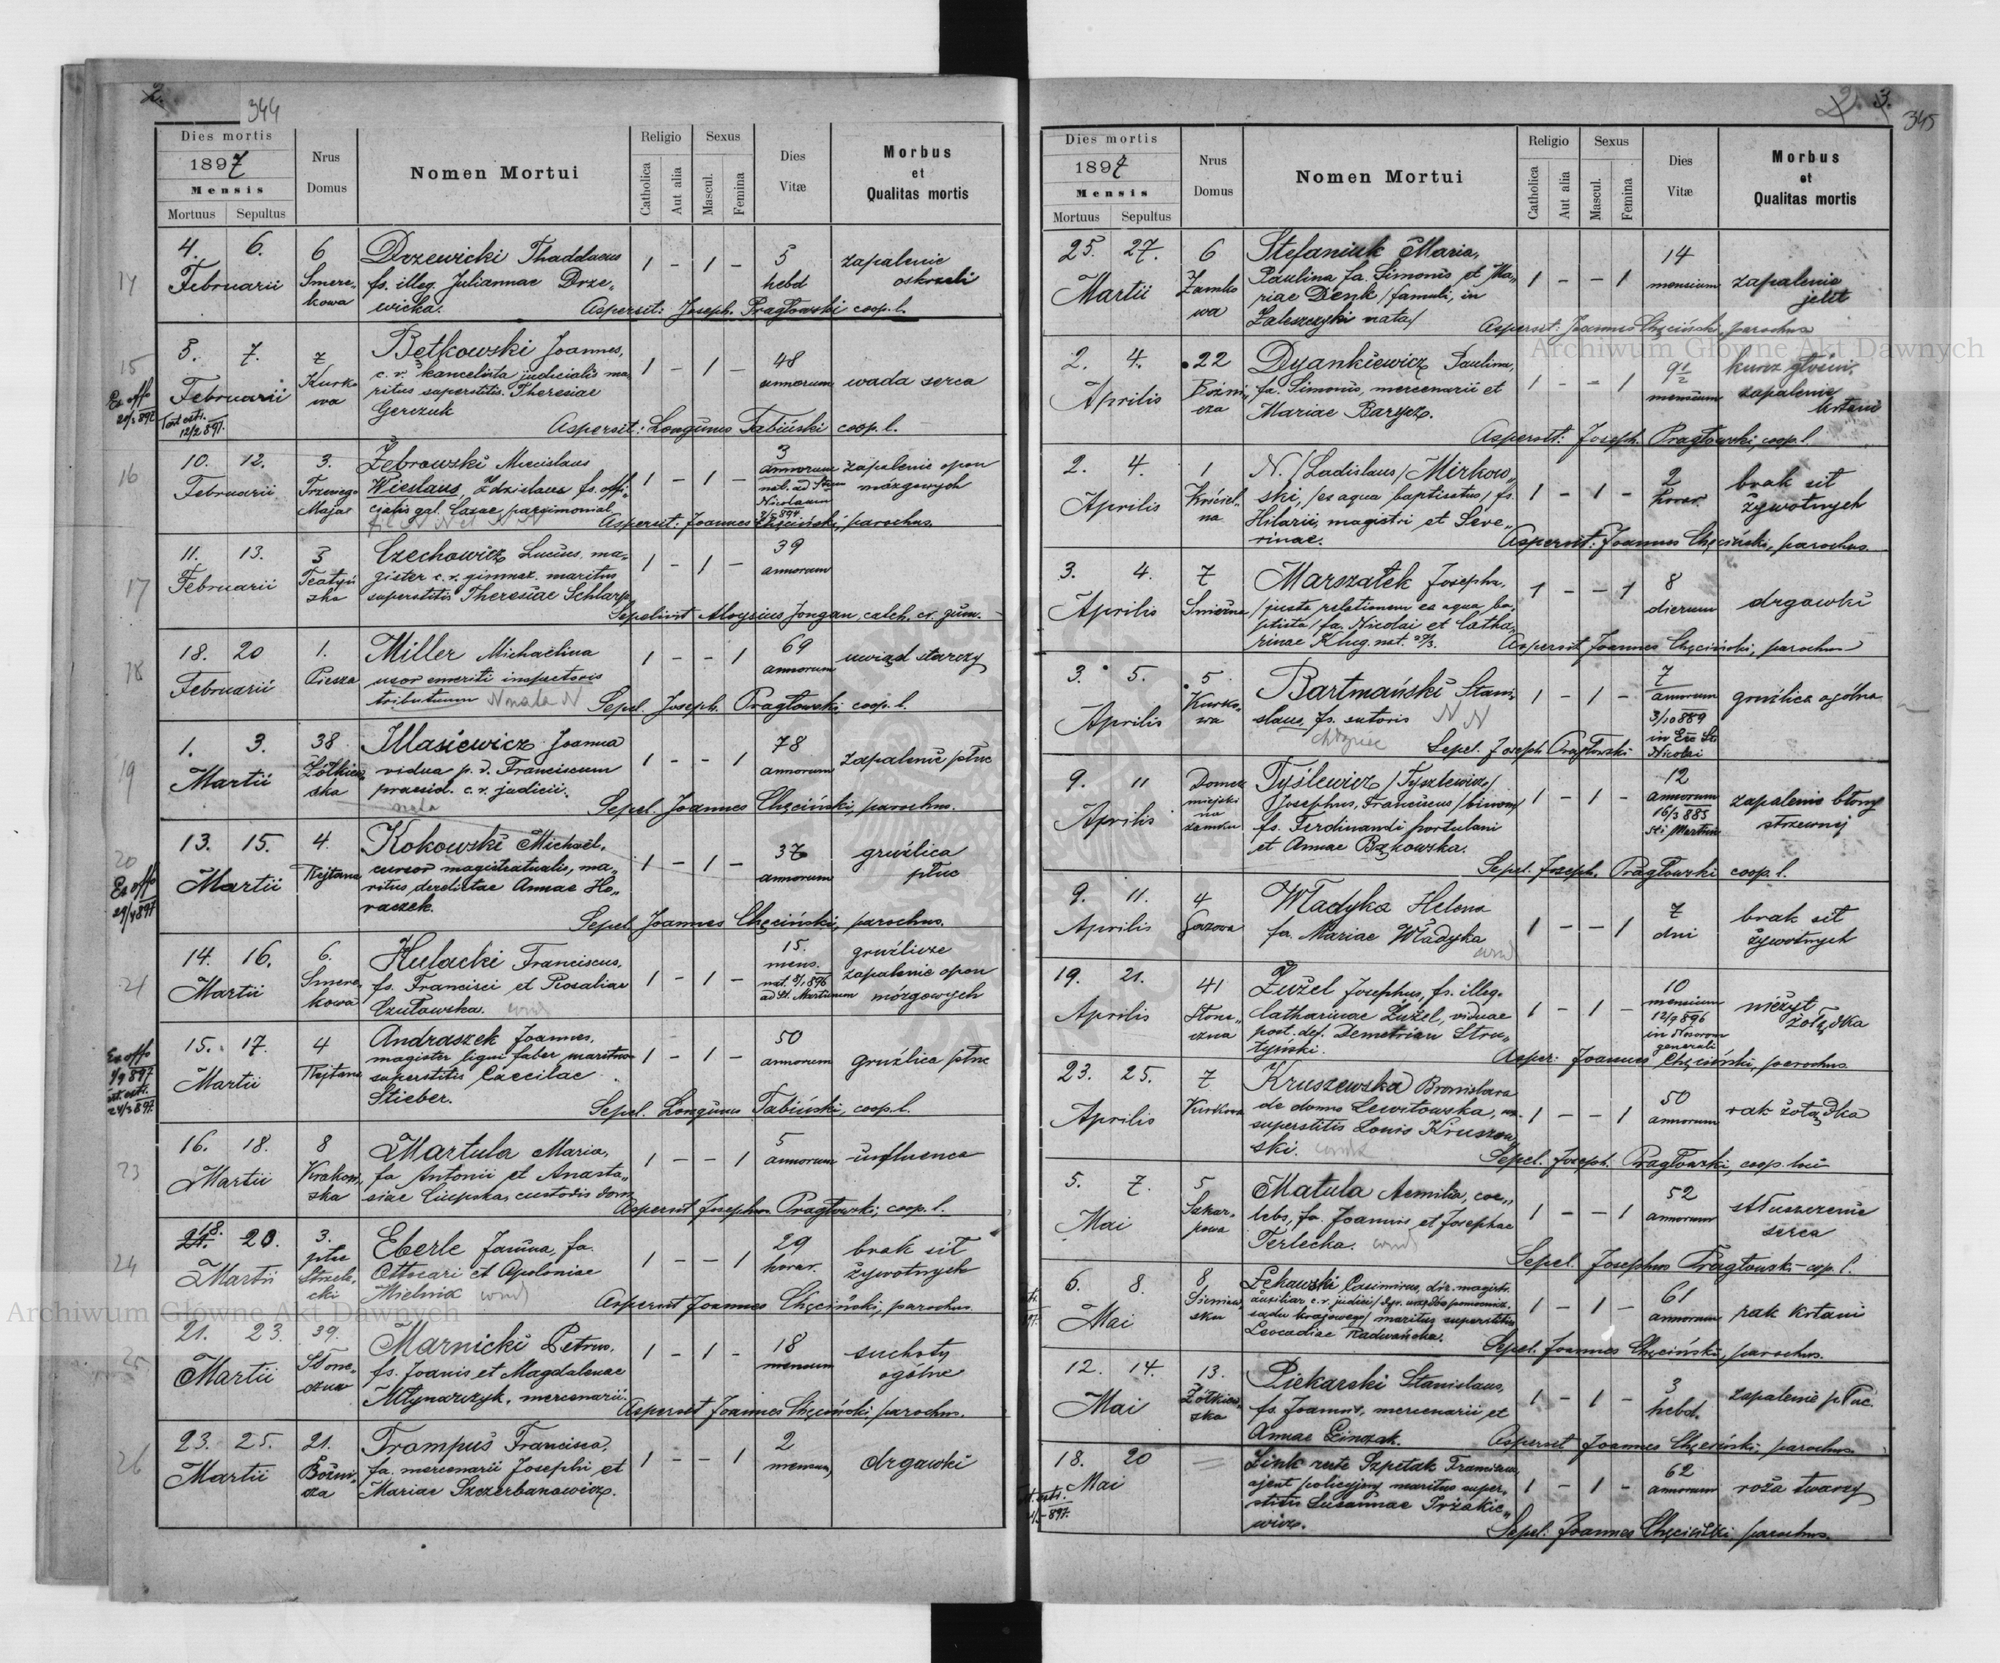 2.
344
Dies mortis
1897
Mensis
Mortuus Sepultus
Nrus
Domus
Nomen Mortui
Religio
Catholica
Aut alia
Sexus
Mascul.
Femina
Dies
Vitæ
Morbus
et
Qualitas mortis
4. 6. 6 Drzewicki Thaddaeus 1 - 1 - 5 zapalenie
Februarii Smere- fs. illeg. Juliannae Drze- hebd oskrzeli
kowa wicka. Aspersit: Joseph. Pragłowski coop. l.
15
5. 7. 7 Bętkowski Joannes, 1 - 1 - 48
Februarii Kurko- c. r. kancelista judicialis ma- annorum wada serca
wa ritus superstitis Theresiae
Gerczuk
Ex offo
Aspersit: Longinus Fabiński coop. l.
16
10. 12. 3. Żebrowski Miecislaus 1 - 1 - 3 annorum zapalenie opon
Februarii Trzeciego Wieslaus, Zdzislaus fs. offi- mózgowych
Maja cialis gal. Cassae parsimonial.
Aspersit: Joannes Chęciński, parochus.
17
11. 13. 3 Czechowicz Lucius ma- 1 - 1 - 39
Februarii Teatyń- gister c. r. gimnaz. maritus annorum
ska superstitis Theresiae
Sepelivit Aloysius Jougan, catech. cr. gimn.
18
18. 20 1. Miller Michaelina 1 - - 1 69 uwiąd starczy
Februarii Piesza uxor emeriti inspectoris annorum
tributuum Sepel. Joseph. Pragłowski, coop. l.
19
1. 3. 38 Illasiewicz Joanna 1 - - 1 78
Martii Żółkiew- vidua p. d. Franciscum annorum zapalenie płuc
ska praesid. c. r. judicii.
Sepel. Joannes Chęciński, parochus.
20
13. 15. 4. Kokowski Michaël, 1 - 1 - 37 gruźlica
Martii Rejtana cursor magistratualis, ma- annorum płuc
ritus derelictae Annae Ho-
raczek.
Ex offo
Sepel. Joannes Chęciński, parochus.
21
14. 16. 6. Hulacki Franciscus, 1 - 1 - 15. mens. gruźlicze
Martii Smere- fs. Francisci et Rosaliae zapalenie opon
kowa Czuławska. ad St. Martinum mózgowych
15. 17. 4 Andraszek Joannes, 1 - 1 - 50
Martii Rejtana magister ligni faber maritus annorum gruźlica płuc
superstitis Caeciliae
Stieber.
Ex offo
Sepel. Longinus Fabiński, coop. l.
23
16. 18. 8 Martula Maria, 1 - - 1 5
Martii Krakow- fa Antonii et Anasta- annorum influenca
ska siae Ciupska, custodis dom.
Aspersit Josephus Pragłowski, coop. l.
24
18. 20. 3. Eberle Janina, fa. 1 - - 1 29 brak sił
Martii plac Ottocari et Apoloniae horar. żywotnych
Strzele-
cki Mielnik
Aspersit Joannes Chęciński, parochus.
25
21. 23. 39. Marnicki Petrus, 1 - 1 - 18 suchoty
Martii Słone- fs. Joanis et Magdalenae mensium ogólne
czna Młynarczyk, mercenarii.
Aspersit Joannes Chęciński, parochus.
26
23. 25. 21. Trompus Francisca, 1 - - 1 2
Martii Bożni- fa. mercenarii Josephi et mensium drgawki
cza Mariae Szczerbanowicz.
3.
345
Dies mortis
1897
Mensis
Mortuus Sepultus
Nrus
Domus
Nomen Mortui
Religio
Catholica
Aut alia
Sexus
Mascul.
Femina
Dies
Vitæ
Morbus
et
Qualitas mortis
25. 27. 6 Stefaniuk Maria, 1 - - 1 14
Martii Zamko- Paulina fa. Simonis et Ma- mensium zapalenie
wa riae Denk /famuli, in jelit
Zaleszczyki nata/
Aspersit: Joannes Chęciński, parochus
2. 4. 22 Dyankiewicz Paulina, 1 - - 1 9½
Aprilis Bożni- fa. Simonis, mercenarii et mensium zapalenie
cza Mariae Barycz. krtani
Aspersit: Joseph. Pragłowski, coop. l.
2. 4. 1 N. /Ladislaus/ Mirkow- 1 - 1 - 2 brak sił
Aprilis ski, /ex aqua baptisatus/ fs. horar. żywotnych
Hilarii, magistri et Seve-
rinae.
Aspersit: Joannes Chęciński, parochus
3. 4. 7 Marszałek Josepha, 1 - - 1 8
Aprilis Śnieżna /juxta relationem ex aqua ba- dierum drgawki
ptista/ fa. Nicolai et Catha-
rinae Klug. nat.
Aspersit Joannes Chęciński, parochus
3. 5. 5 Bartmański Stani- 1 - 1 - 7
Aprilis Kurko- slaus, fs. sutoris N N annorum gruźlica ogólna
wa 3/10 889
Nicolai
Sepel. Joseph Pragłowski
9. 11 Domek Tyślewicz /Tyszlewicz/ 1 - 1 - 12
Aprilis miejski Josephus, Franciscus /binom/ annorum zapalenie błony
na fs. Ferdinandi portulani 16/3 885 strzewnej
zamku et Annae Bąkowska. Sti Martin
Sepel. Joseph. Pragłowski coop. l.
9. 11. 4 Władyka Helena 1 - - 1 7 brak sił
Aprilis Gazowa fa. Mariae Władyka dni żywotnych
19. 21. 41 Żużel Josephus, fs. illeg. 1 - 1 - 10
Aprilis Słone- Catharinae Żużel, viduae mensium nieżyt
czna post. def. Demetrian Stru- 12/7 896 żołądka
tyński. generali
Asper: Joannes Chęciński, parochus.
23. 25. 7 Kruszewska Bronislava 1 - - 1 50
Aprilis Kurkowa de domo Lewitowska, ux. annorum rak żołądka
superstitis Louis Kruszew-
ski.
Sepel. Joseph. Pragłowski, coop.
5. 7. 5 Matula Aemilia, coe- 1 - - 1 52 stłuszczenie
Mai Szkar- lebs, fa. Joannis et Josephae annorum serca
powa Terlecka.
Sepel. Josephus Pragłowski coop. l.
6. 8. 8 Łękawski Casimirus, dir. magistr. 1 - 1 - 61
Mai Sieniaw- auxiliar c. r. judicii annorum rak krtani
ska sądu krajowego/ maritus superstitis
Leocadiae Radwańska.
Sepel. Joannes Chęciński, parochus.
12. 14. 13. Piekarski Stanislaus, 1 - 1 - 3
Mai Żółkiew- fs. Joannis, mercenarii et hebd. zapalenie płuc.
ska Annae
Aspersit Joannes Chęciński, parochus.
18. 20 Link recte Szpetak Franciscus, 1 - 1 - 62
Mai ajent policyjny maritus super- annorum róża twarzy
stitis Susannae Trzakie-
wicz.
Sepel: Joannes Chęciński, parochus.
Archiwum Główne Akt Dawnych
Archiwum Główne Akt Dawnych